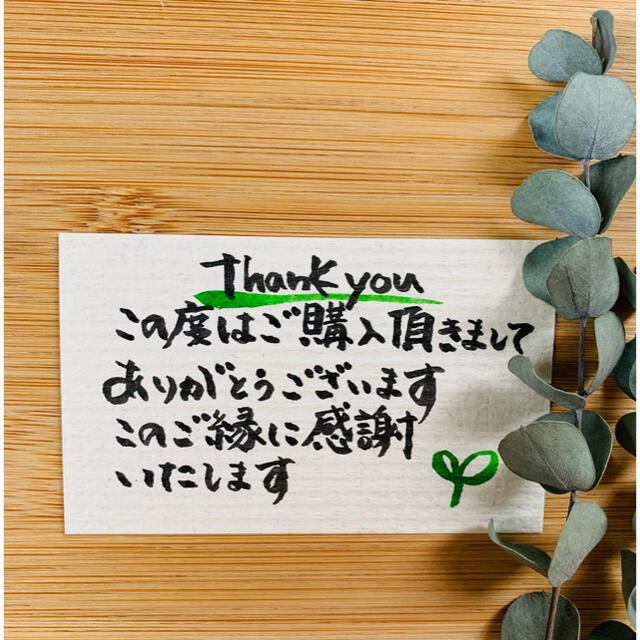 Thank you
この度はご購入頂きまして
ありがとうございます
このご縁に感謝
いたします